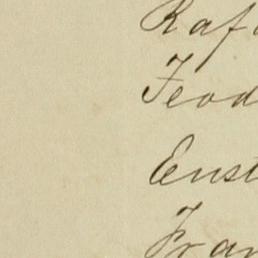 Rafa
Feod
Eust
Fran